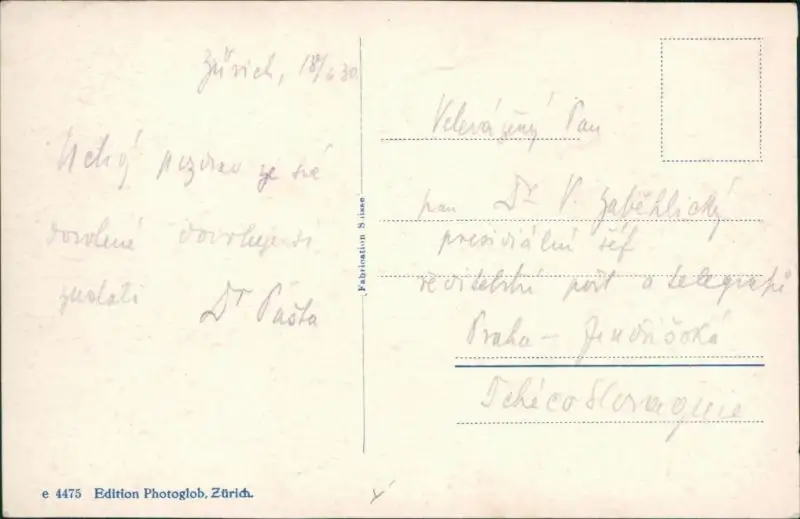 Zürich, 18/6 30
Uctivý pozdrav ze své
dovolené dovoluje si
zaslati Dr Pašta
Velevážený Pan
pan Dr V. Zaběhlický
presidiální šéf
ředitelství pošt a telegrafů
Praha – Jindřišská
Tchécoslovaquie
Fabrication Suisse
e 4475 Edition Photoglob, Zürich.